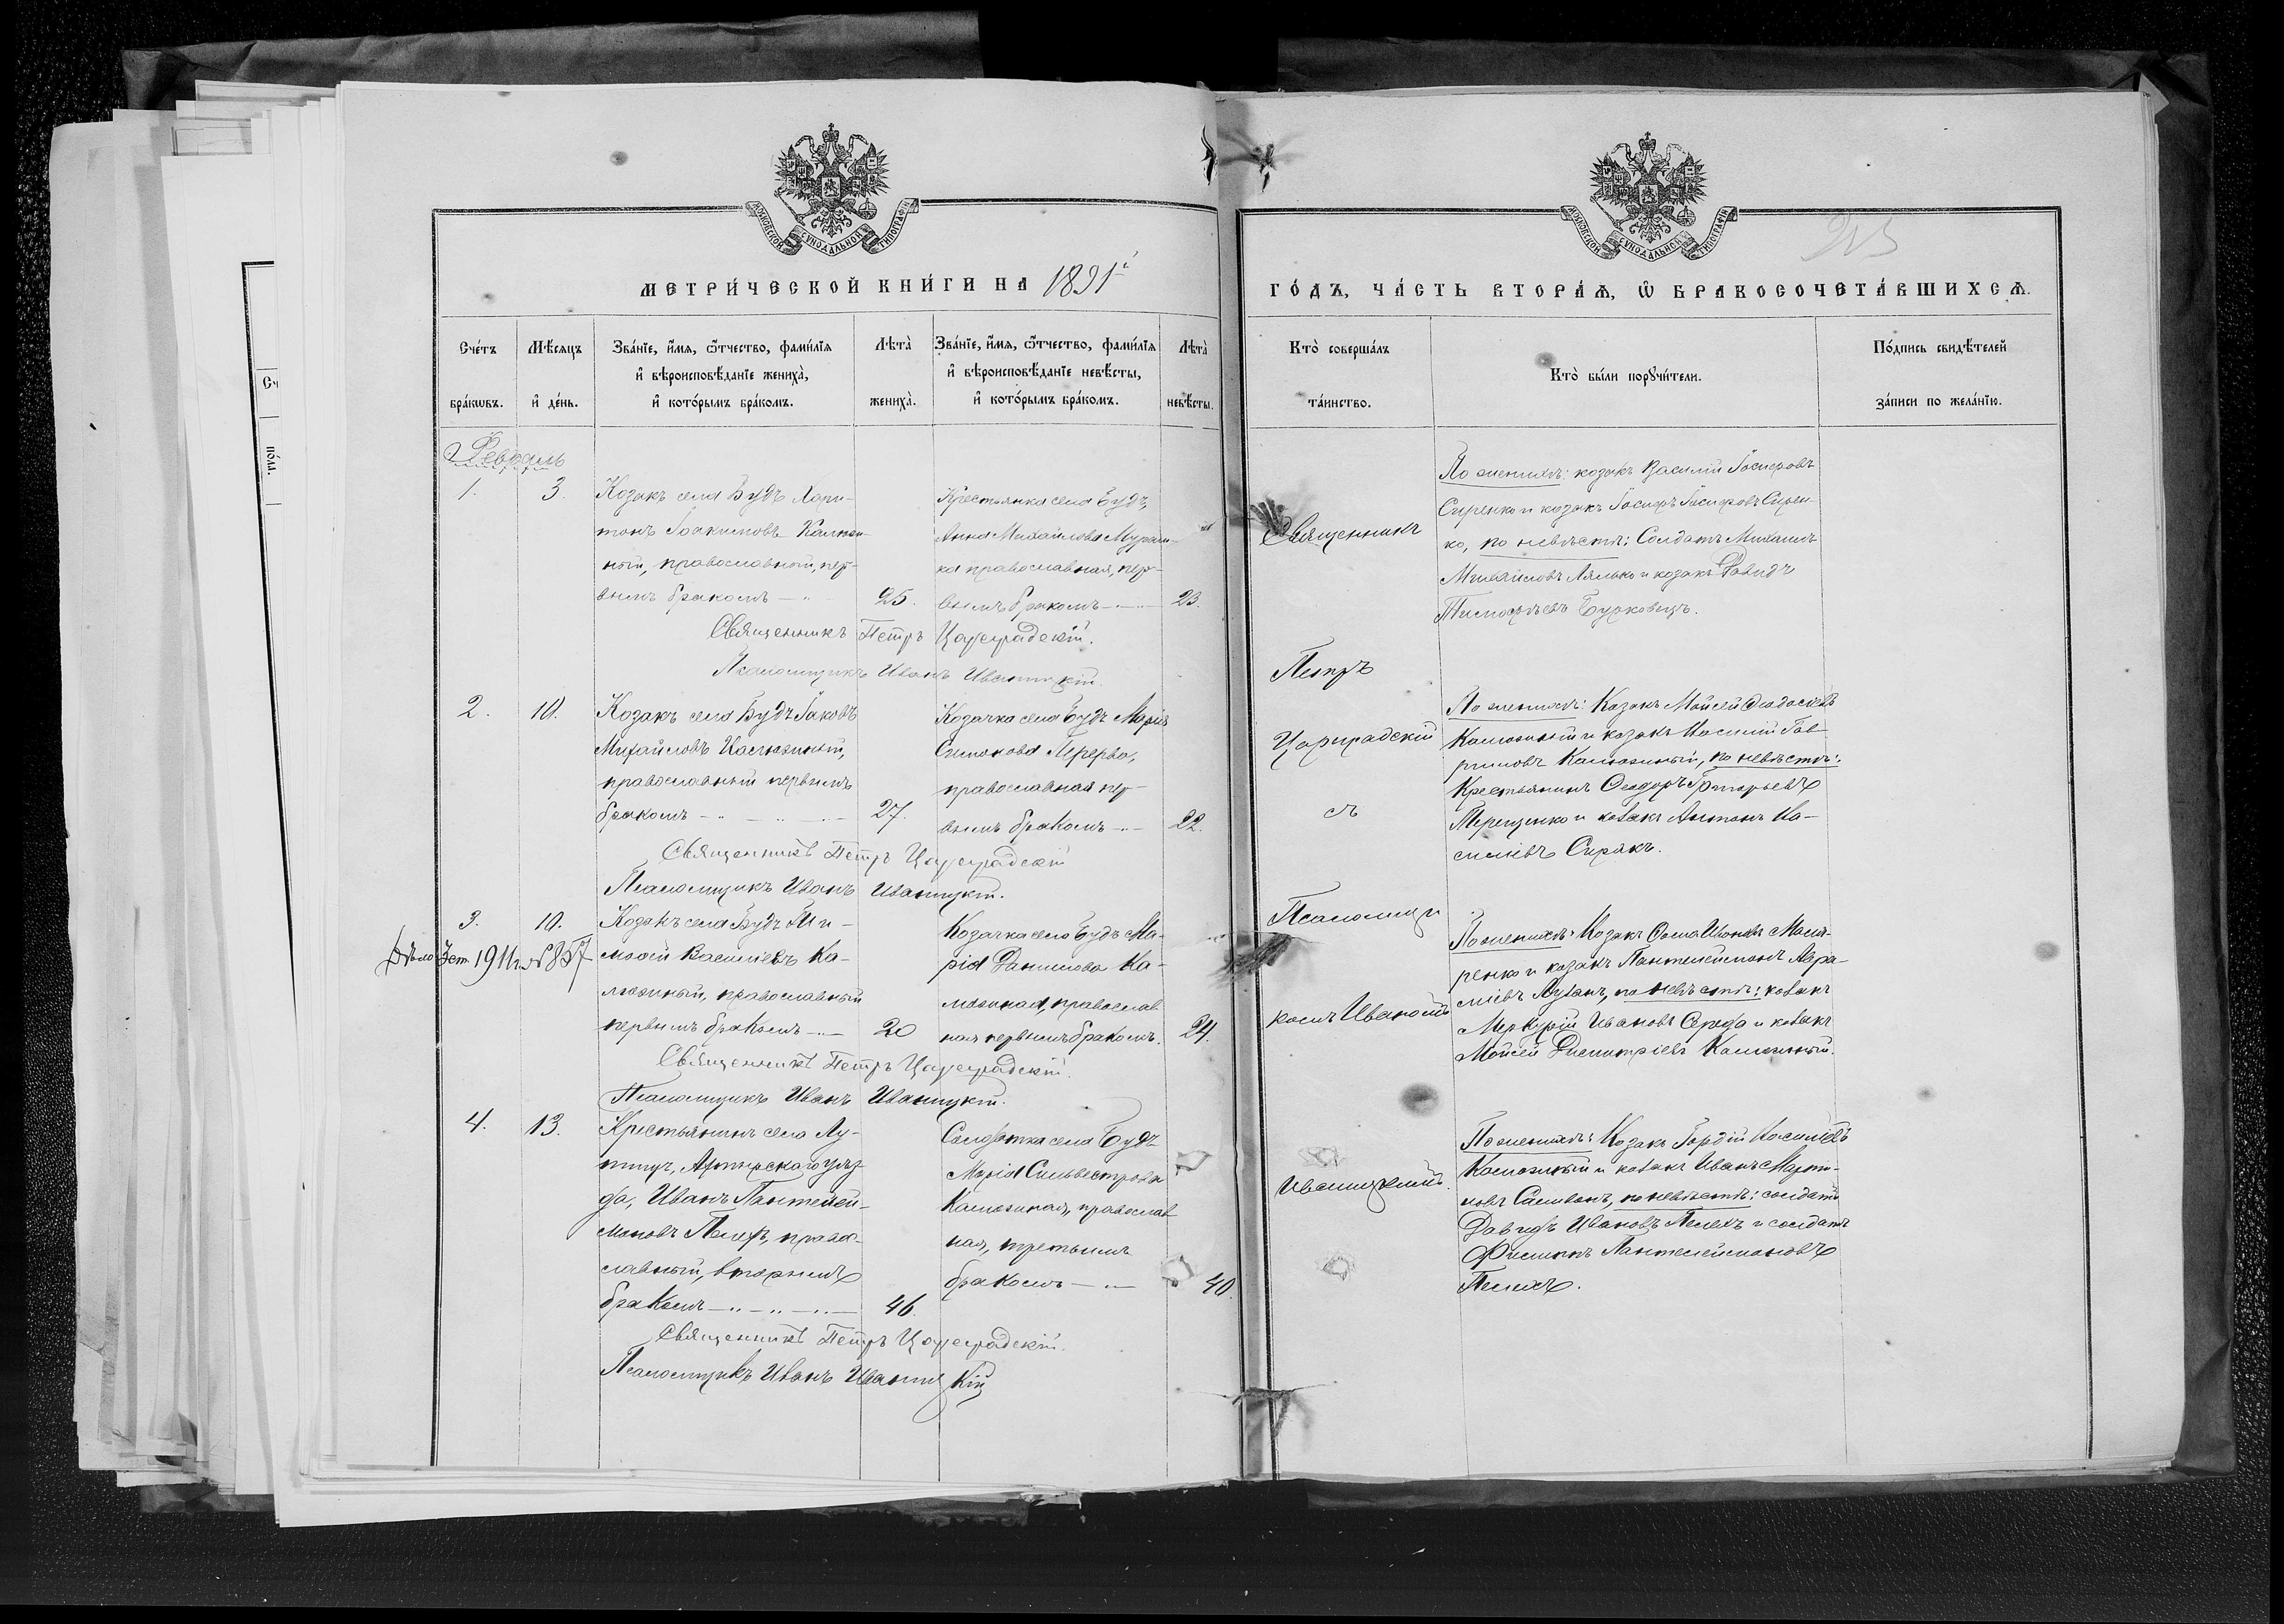 МОСКОВСКОЙ СѴНОДАЛЬНОЙ ТИПОГРАФІИ
МЕТРИ́ЧЕСКОЙ КНИ́ГИ НА 1891й
Сче́тъ бра́кωвъ.
Мѣ́сяцъ и҆ де́нь.
Зва́нїе, и҆́мя, ѻ҆́тчество, фами́лїя
и҆ вѣроисповѣ́данїе жениха̀,
и҆ кото́рымъ бра́комъ.
Лѣта̀ жениха̀.
Зва́нїе, и҆́мя, ѻ҆́тчество, фами́лїя
и҆ вѣроисповѣ́данїе невѣ́сты,
и҆ кото́рымъ бра́комъ.
Лѣта̀ невѣ́сты.
Февраль
1. 3.
Козакъ села Будъ Хари-
тонъ Іоакимовъ
ный, православный, пер-
вымъ бракомъ 25.
Крестьянка села Будъ,
Анна Михайлова
ка православная, пер-
вымъ бракомъ 23.
Священникъ Петръ Цареградскій.
Псаломщикъ Иванъ Иваницкій.
2. 10.
Козакъ села Будъ Іаковъ
Михайловъ Калюжный,
православный первымъ
бракомъ 27.
Козачка села Будъ Марія
Симонова Перерва,
православная пер-
вымъ бракомъ 22.
Священникъ Петръ Цареградскій
Псаломщикъ Иванъ Иваницкій.
3. 10.
Дѣло 1911 г. № 857
Козакъ села Будъ Ти-
моѳей Василіевъ Ка-
люжный, православный
первымъ бракомъ 20
Козачка села Будъ Ма-
рія Данилова Ка-
люжная, православ
ная первымъ бракомъ. 24.
Священникъ Петръ Цареградскій.
Псаломщикъ Иванъ Иваницкій.
4. 13.
Крестьянинъ села Лу-
тищъ, Ахтырскаго уѣз-
да, Иванъ Пантелей-
моновъ Пелехъ, право-
славный, вторымъ
бракомъ 46.
Солдатка села Будъ
Марія Сильвестрова
Калюжная, православ
ная, третьимъ
бракомъ 40.
Священникъ Петръ Цареградскій.
Псаломщикъ Иванъ Иваницкій
МОСКОВСКОЙ СѴНОДАЛЬНОЙ ТИПОГРАФІИ
ГО́ДЪ, ЧА́СТЬ ВТОРА́Ѧ, Ѽ БРАКОСОЧЕТА́ВШИХСѦ.
Кто̀ соверша́лъ та́инство.
Кто̀ бы́ли порꙋчи́тели.
По́дпись свидѣ́телей за́писи по жела́нїю.
Священникъ
Петръ
Цареградскій
съ
Псаломщи
комъ Иваномъ
Иваницкимъ.
По женихѣ: козакъ Василій Іосифовъ
Сиренко и козакъ Іосифъ Іосифовъ Сирен-
ко, по невѣстѣ: Солдатъ Михаилъ
Михайловъ Лялько и козакъ Давидъ
Тимоѳѣевъ Бурковецъ.
По женихѣ: Козакъ Мойсей Ѳеодосіевъ
Калюжный и козакъ Василій Гав
риловъ Калюжный, по невѣстѣ:
Крестьянинъ Ѳеодоръ Григорьевъ
Терещенко и козакъ Антонъ Ва-
силіевъ Сирикъ.
По женихѣ: Козакъ Сома Ивановъ
ренко и козакъ Пантелеймонъ Авра-
міевъ Лузанъ, по невѣстѣ: козакъ
Меркурій Ивановъ Середа и козакъ
Мойсей Димитріевъ Калюжный.
По женихѣ: Козакъ Гордій Василіевъ
Калюжный и козакъ Иванъ Марти-
новъ Селиванъ, по невѣстѣ: солдатъ
Давидъ Ивановъ Пелехъ и солдатъ
Филиппъ Пантелеймоновъ
Пелехъ.